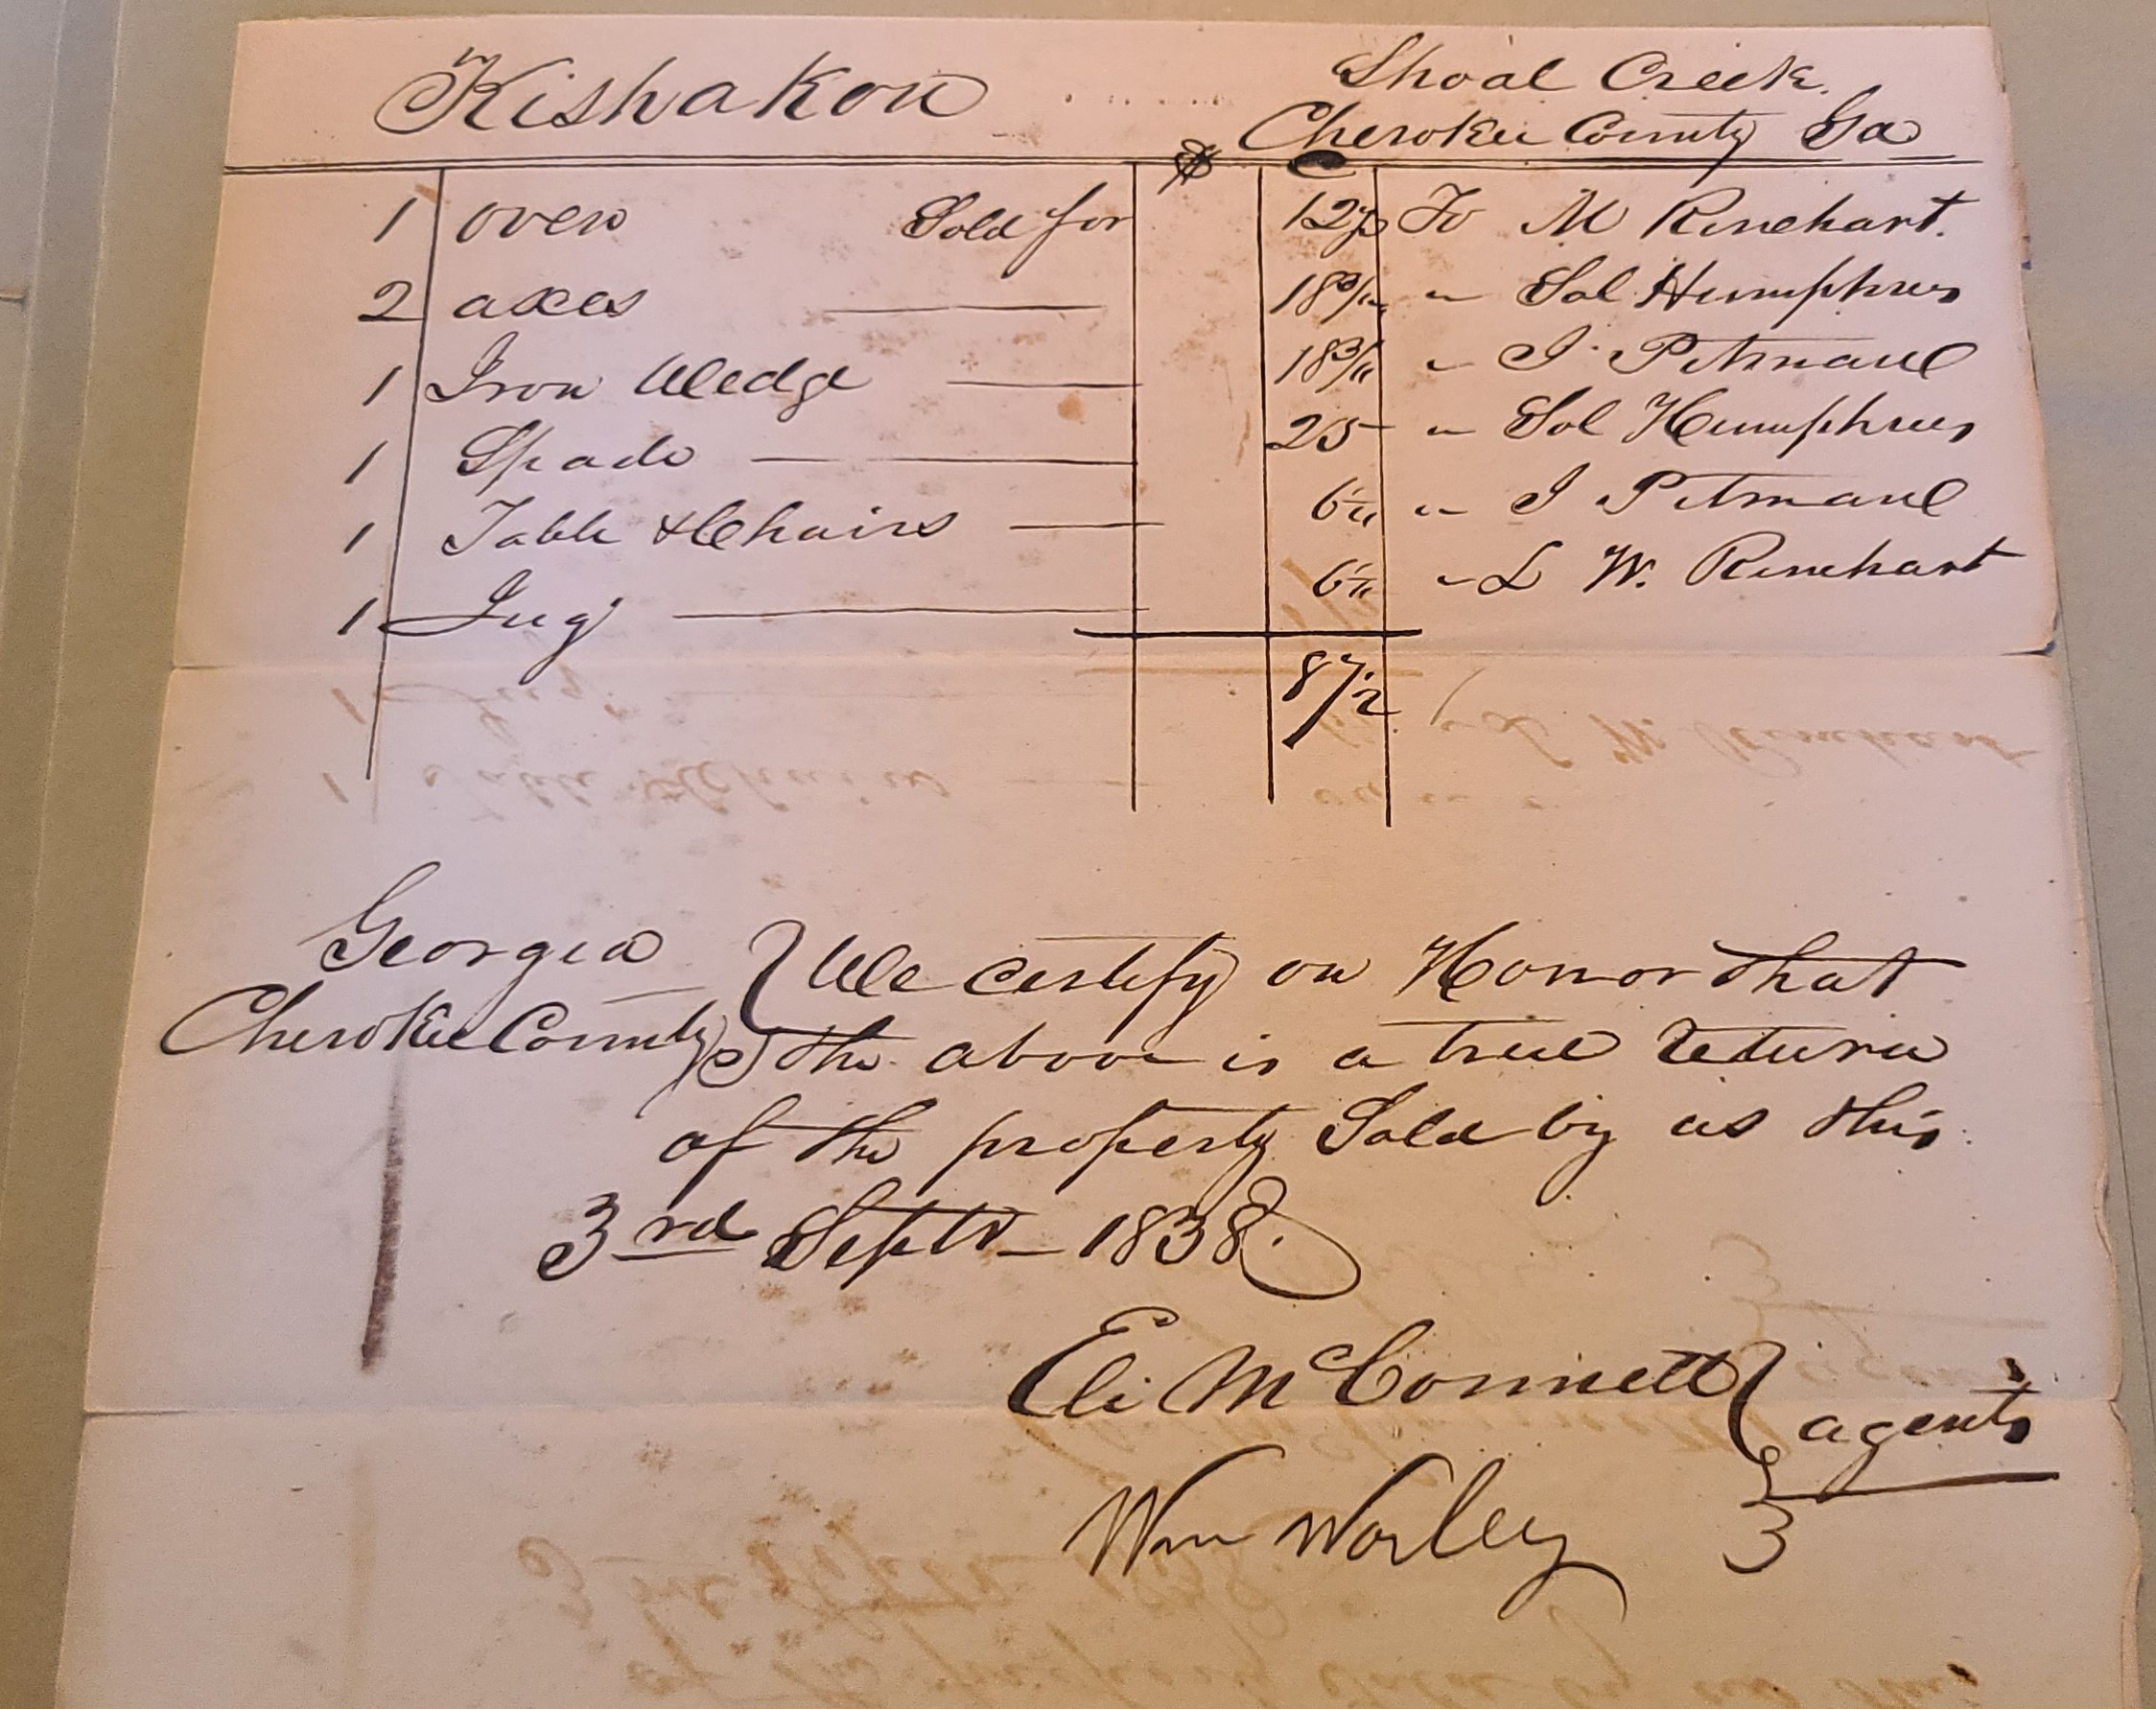 Kishakon
Shoal Creek.
Cherokee County Ga
$ C
1 oven Sold for 12½ To M Rinehart.
2 axes 18¾ " Sol Humphries
1 Iron Wedge 18¾ " I. Pitman
1 Spade 25 " Sol Humphries
1 Table & Chairs 6¼ " I Pitman
1 Jug 6¼ " L W. Rinehart
87½
Georgia
Cherokee County
We certify on Honor that
the above is a true return
of the property Sold by us this
3rd Septr 1838.
Eli McConnell
agents
Wm Worley